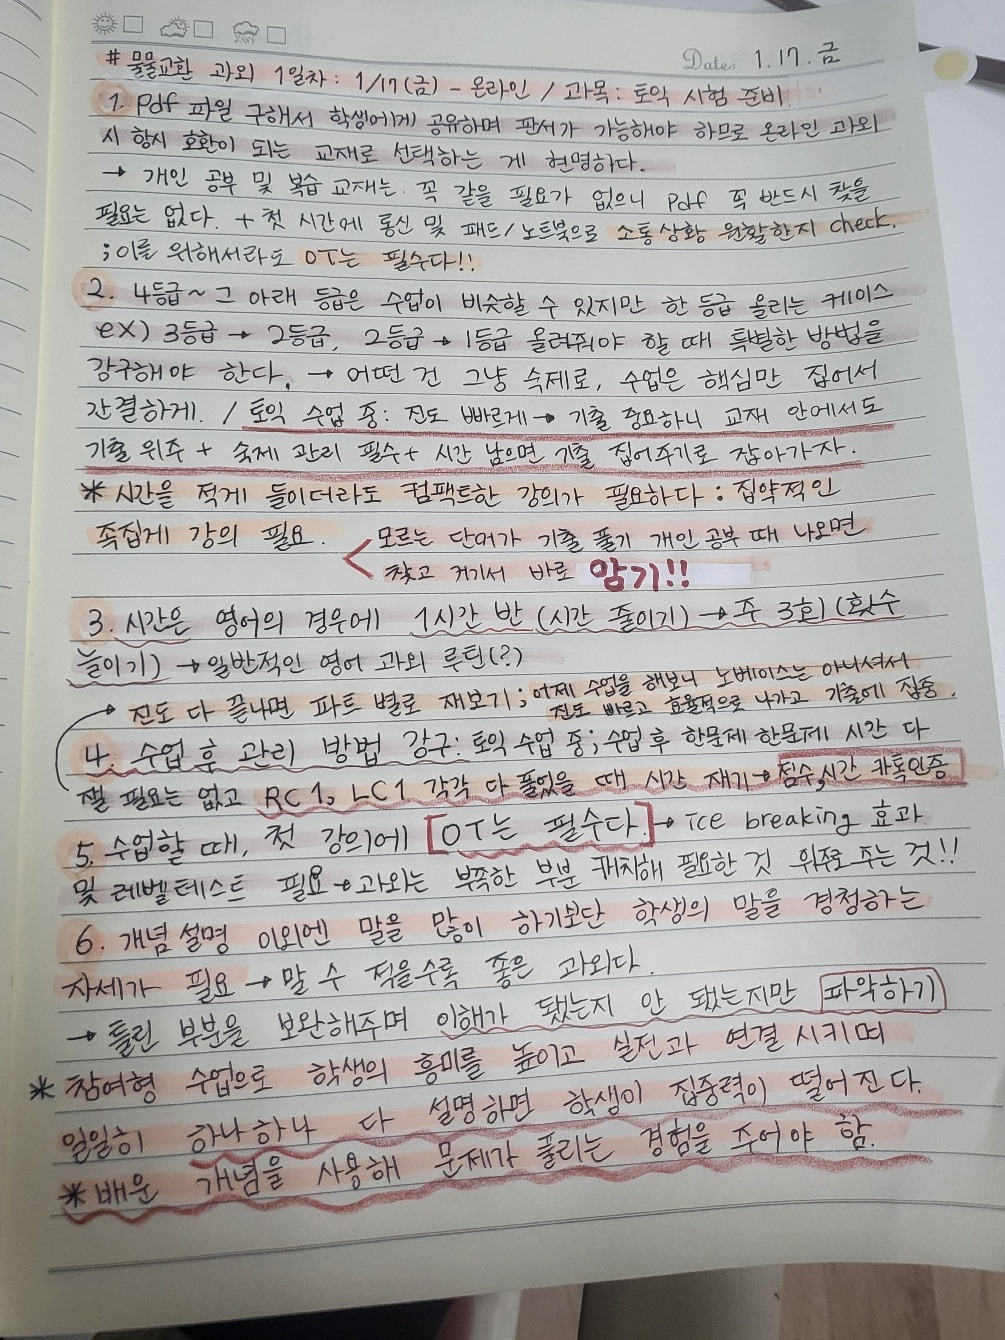 Date. 1.17.금
# 물물교환 과외 1일차: 1/17(금) - 온라인 / 과목: 토익 시험 준비
1. Pdf 파일 구해서 학생에게 공유하며 판서가 가능해야 하므로 온라인 과외
시 항시 호환이 되는 교재로 선택하는 게 현명하다.
→ 개인 공부 및 복습 교재는 꼭 같을 필요가 없으니 Pdf 꼭 반드시 찾을
필요는 없다. + 첫 시간에 통신 및 패드/노트북으로 소통상황 원활한지 check.
; 이를 위해서라도 OT는 필수다!!
2. 4등급~그 아래 등급은 수업이 비슷할 수 있지만 한 등급 올리는 케이스
ex) 3등급 → 2등급, 2등급 → 1등급 올려줘야 할 때 특별한 방법을
강구해야 한다. → 어떤 건 그냥 숙제로, 수업은 핵심만 집어서
간결하게. / 토익 수업 중: 진도 빠르게 → 기출 중요하니 교재 안에서도
기출 위주 + 숙제 관리 필수 + 시간 남으면 기출 집어주기로 잡아가자.
* 시간을 적게 들이더라도 컴팩트한 강의가 필요하다 : 집약적인
족집게 강의 필요.
< 모르는 단어가 기출 풀기 개인 공부 때 나오면
찾고 거기서 바로 암기!!
3. 시간은 영어의 경우에 1시간 반 (시간 줄이기) → 주 3회 (횟수
늘이기) → 일반적인 영어 과외 루틴(?)
→ 진도 다 끝나면 파트 별로 재보기 ; 어제 수업을 해보니 노베이스는 아니셔서
진도 빠르고 효율적으로 나가고 기출에 집중.
4. 수업 후 관리 방법 강구: 토익 수업 중 ; 수업 후 한문제 한문제 시간 다
잴 필요는 없고 RC1, LC1 각각 다 풀었을 때 시간 재기 → 점수, 시간 카톡인증
5. 수업할 때, 첫 강의에 [OT는 필수다.] → ice breaking 효과
및 레벨테스트 필요 → 과외는 부족한 부분 캐치해 필요한 것 위주로 주는 것!!
6. 개념 설명 이외엔 말을 많이 하기보단 학생의 말을 경청하는
자세가 필요 → 말 수 적을수록 좋은 과외다.
→ 틀린 부분을 보완해주며 이해가 됐는지 안 됐는지만 파악하기
* 참여형 수업으로 학생의 흥미를 높이고 실전과 연결 시키며
일일히 하나하나 다 설명하면 학생이 집중력이 떨어진다.
* 배운 개념을 사용해 문제가 풀리는 경험을 주어야 함.